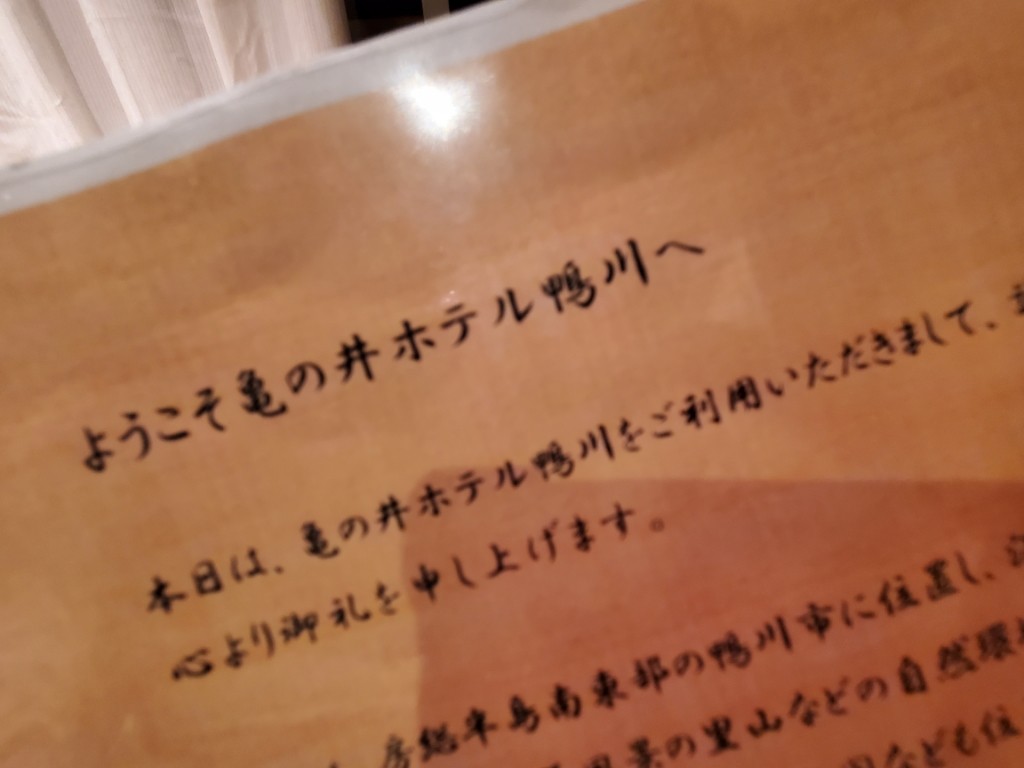 ようこそ亀の井ホテル鴨川へ
本日は、亀の井ホテル鴨川をご利用いただきまして、
心より御礼を申し上げます。
房総半島南東部の鴨川市に位置し、
の里山などの自然環
なども位